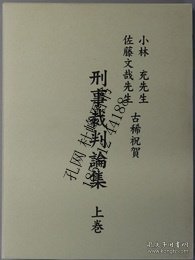 小林 充先生
佐藤文哉先生
古稀祝賀
刑事裁判論集
上巻